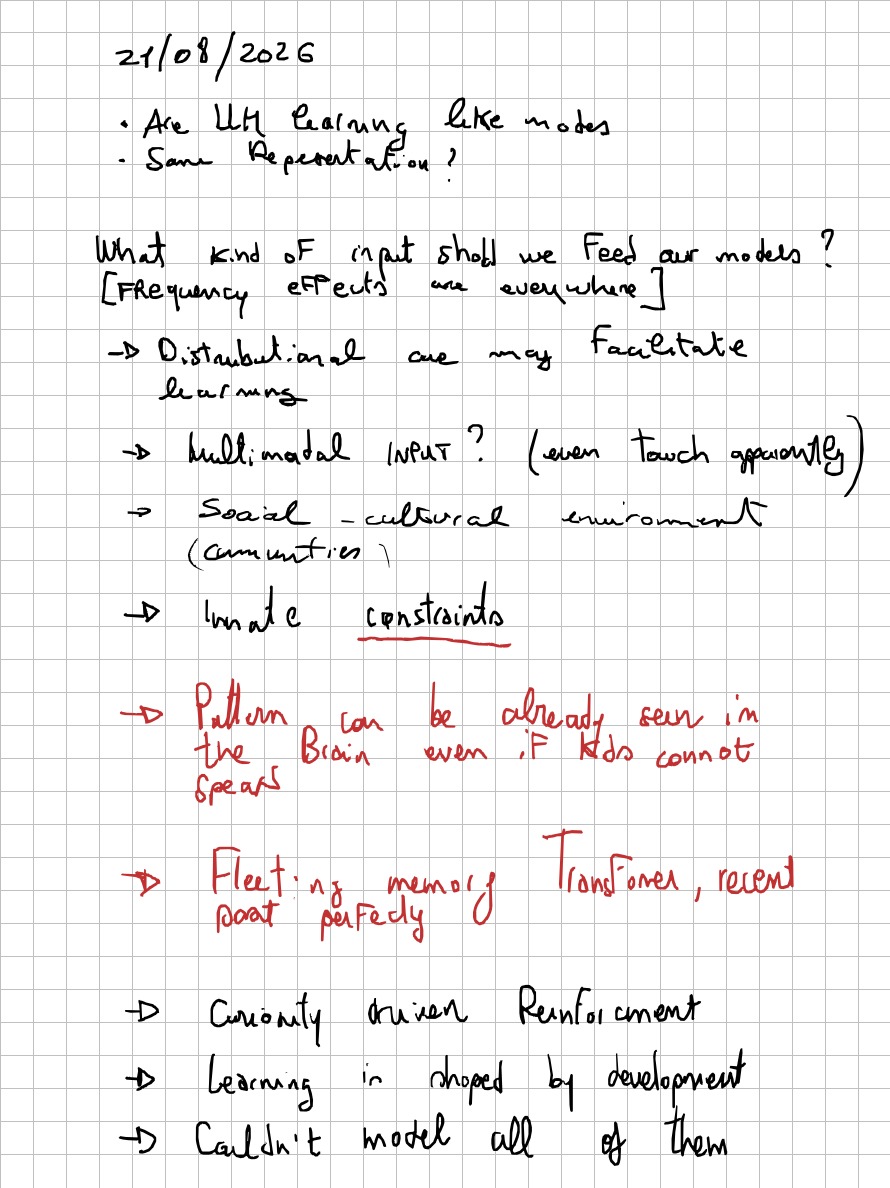 21/08/2026
• Are LLM learning like modes
• Same Representation?
What kind of input shold we Feed our models?
[FRequency eFFects are everywhere]
→ Distributional cue may Facilitate
learning
→ Multimodal INPUT? (even touch apparently)
→ Social-cultural environment
(communities)
→ Innate constraints
→ Pattern can be already seen in
the Brain even iF kids cannot
speak
→ Fleeting memory TransFormer, recent
past perFectly
→ Curiosity driven ReinForcment
→ Learning is shaped by development
→ Couldn't model all of them